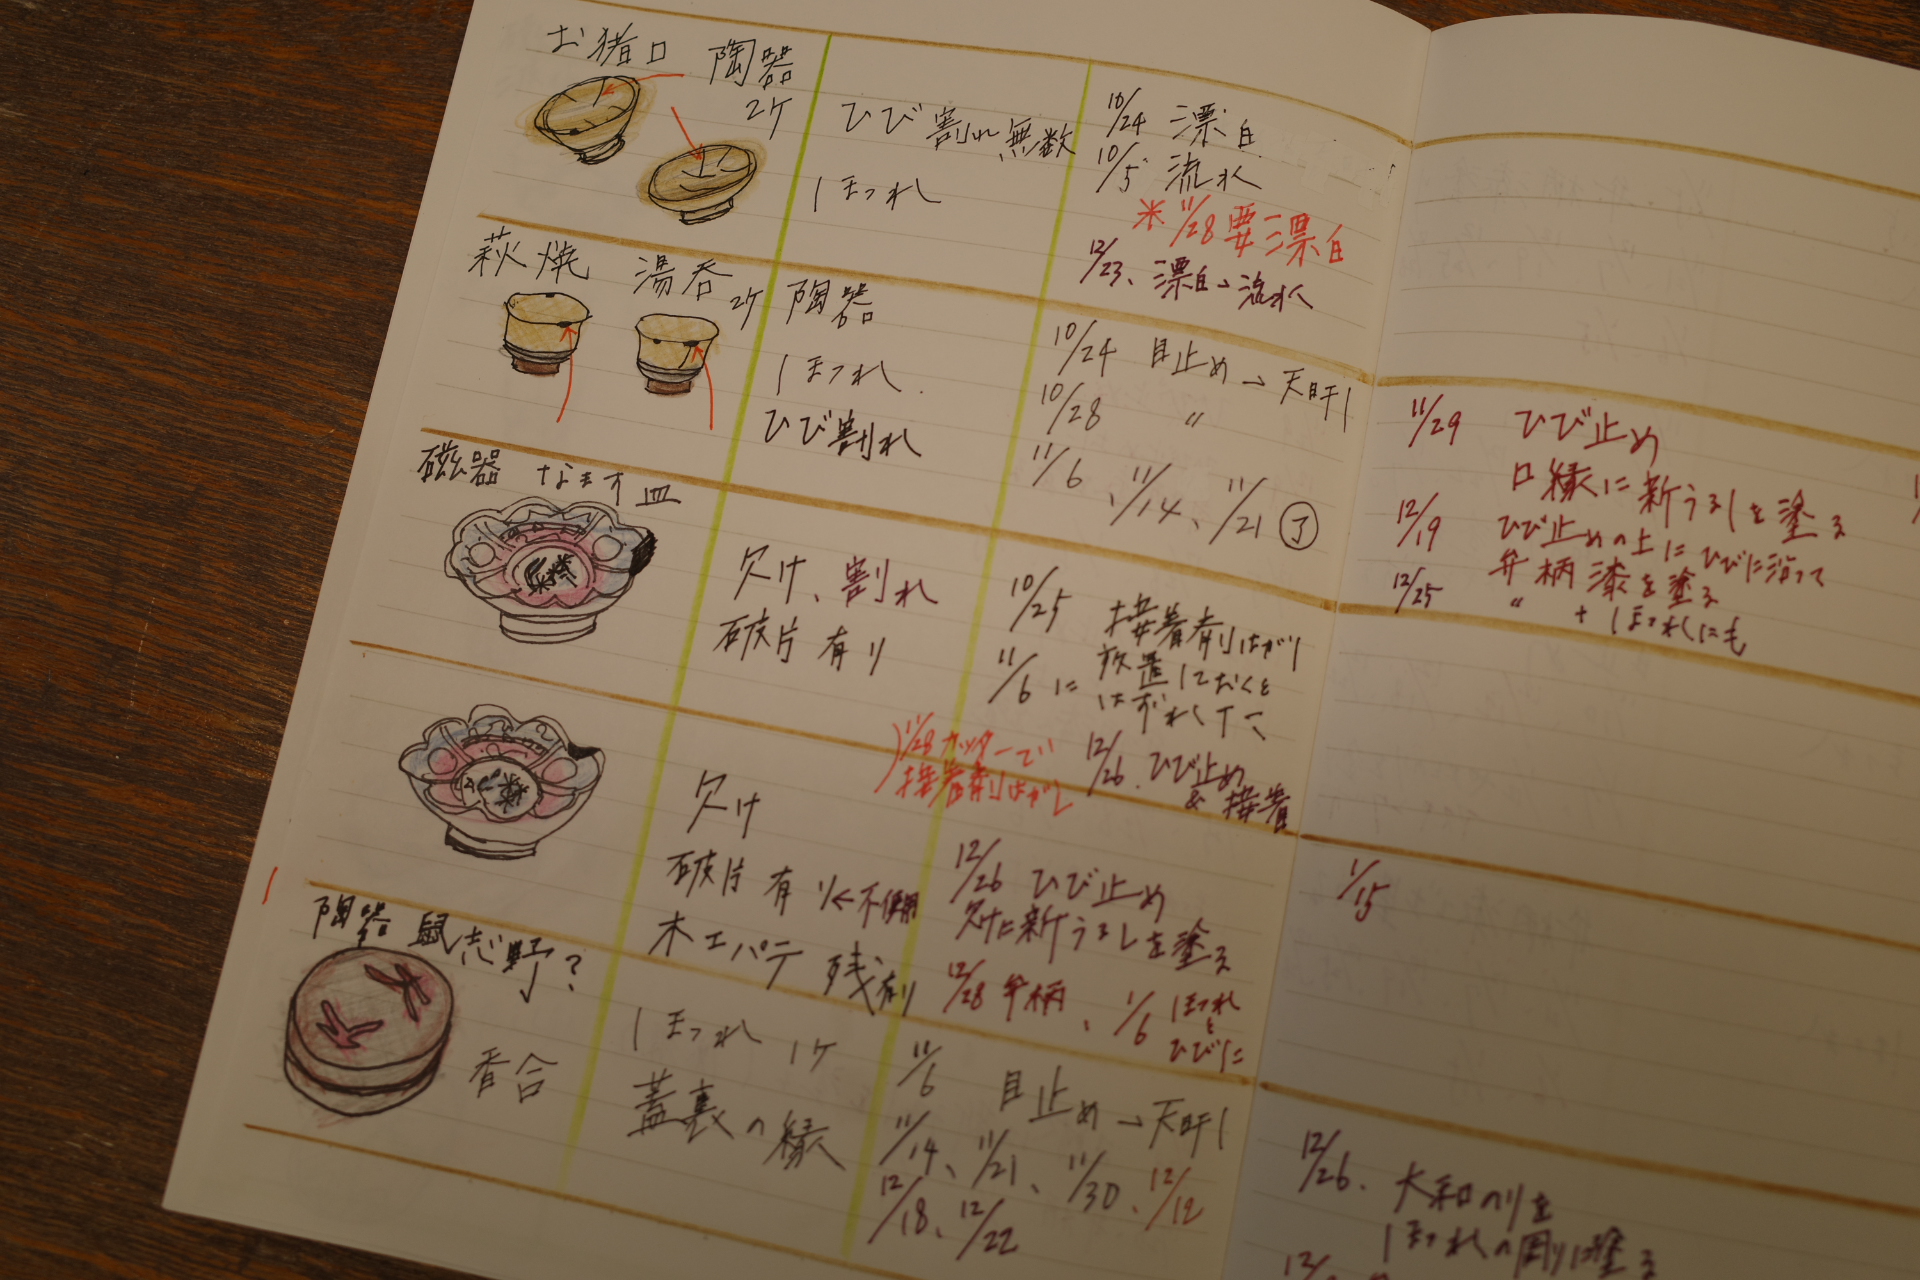 お猪口 陶器
2ケ
ひび割れ無数
ほつれ
10/24 漂白
10/5 流水
※11/28 要漂白
12/23、漂白→流水
萩焼 湯呑
2ケ 陶器
ほつれ
ひび割れ
10/24 目止め→天日干し
10/28 〃
11/6、11/14、11/21 了
11/29 ひび止め
口縁に新うるしを塗る
12/19 ひび止めの上にひびに沿って
弁柄漆を塗る
12/25 〃 + ほつれにも
磁器 なます皿
欠け、割れ
破片有り
10/25 接着剤はがし
11/6 に放置しておくと
はずれして
11/28 カッターで
接着剤はがし
12/26. ひび止め
& 接着
欠け
破片有り←不使用
木工パテ残有り
12/26 ひび止め
欠けに新うるしを塗る
12/28 弁柄、1/6 ほつれ
と
ひびに
1/15
陶器 鼠志野?
香合
ほつれ 1ケ
蓋裏の縁
11/6 目止め→天日干し
11/14、11/21、11/30、12/12
12/18、12/22
12/26. 大和のりを
ほつれの
塗る